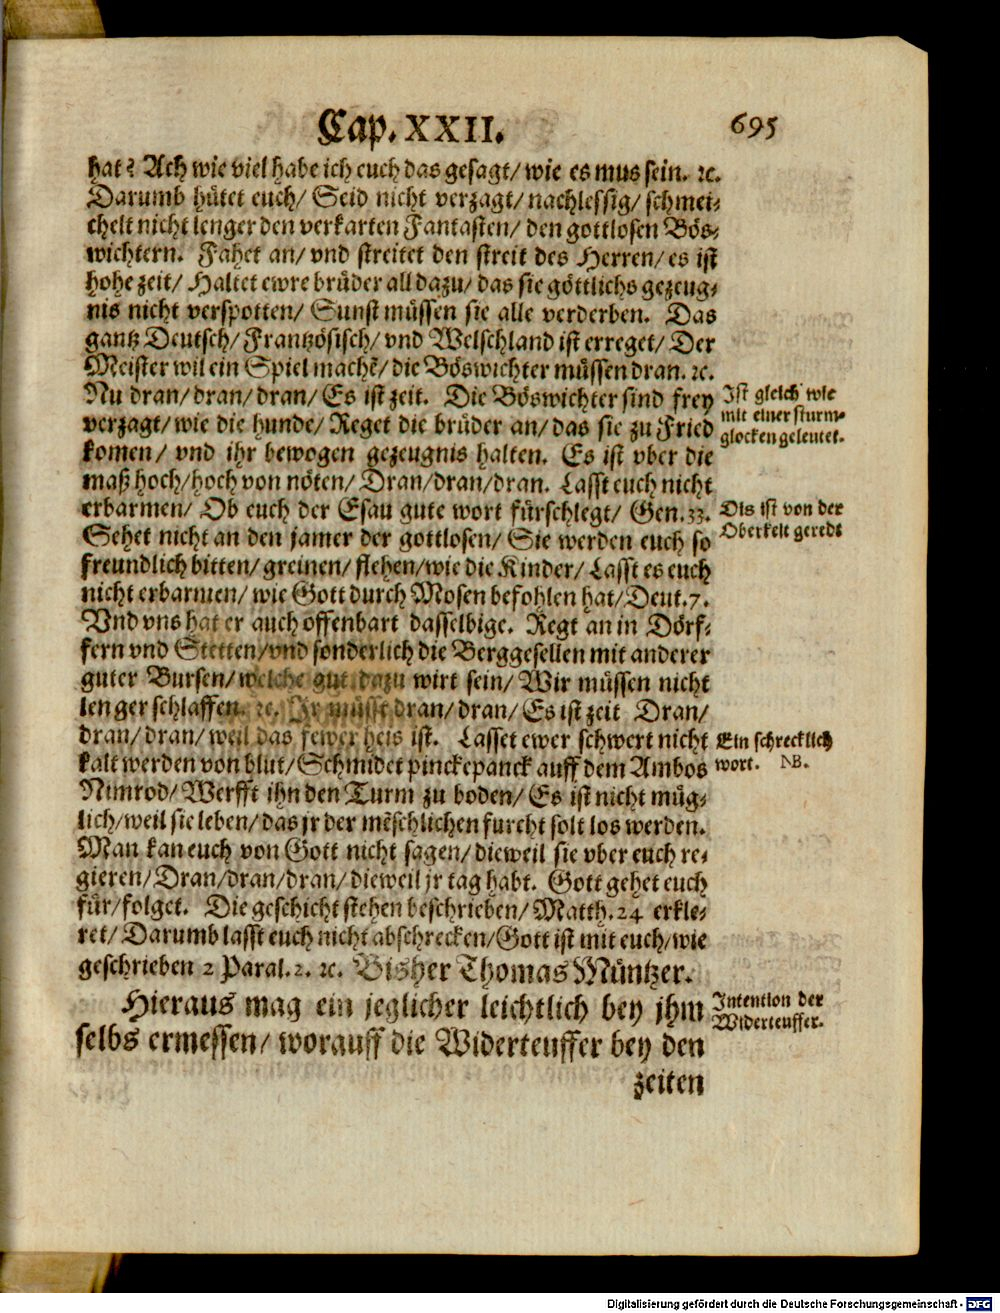 Cap. XXII. 695
hat? Ach wie viel habe ich euch das gesagt/ wie es mus sein. ꝛc.
Darumb hütet euch/ Seid nicht verzagt/ nachlessig/ schmei-
chelt nicht lenger den verkarten Fantasten/ den gottlosen Bös-
wichtern. Fahet an/ vnd streitet den streit des Herren/ es ist
hohe zeit/ Haltet ewre brüder all dazu/ das sie göttlichs gezeug-
nis nicht verspotten/ Sunst müssen sie alle verderben. Das
gantz Deutsch/ Frantzösisch/ vnd Welschland ist erreget/ Der
Meister wil ein Spiel machẽ/ die Böswichter müssen dran. ꝛc.
Nu dran/ dran/ dran/ Es ist zeit. Die Böswichter sind frey
Ist gleich wie
mit einer sturm-
glocken geleutet.
verzagt/ wie die hunde/ Reget die brüder an/ das sie zu Fried
komen/ vnd ihr bewogen gezeugnis halten. Es ist vber die
maß hoch/ hoch von nöten/ Dran/ dran/ dran. Lasst euch nicht
erbarmen/ Ob euch der Esau gute wort fürschlegt/ Gen. 33.
Dis ist von der
Oberkeit geredt
Sehet nicht an den jamer der gottlosen/ Sie werden euch so
freundlich bitten/ greinen/ flehen/ wie die Kinder/ Lasst es euch
nicht erbarmen/ wie Gott durch Mosen befohlen hat/ Deut. 7.
Vnd vns hat er auch offenbart dasselbige. Regt an in Dörf-
fern vnd Stetten/ vnd sonderlich die Berggesellen mit anderer
guter Bursen/ welche gut dazu wirt sein/ Wir müssen nicht
lenger schlaffen. ꝛc. Ir müsst dran/ dran/ Es ist zeit Dran/
dran/ dran/ weil das fewer heis ist. Lasset ewer schwert nicht
Ein schrecklich
wort. NB.
kalt werden von blut/ Schmidet pinckepanck auff dem Ambos
Nimrod/ Werfft ihn den Turm zu boden/ Es ist nicht müg-
lich/ weil sie leben/ das jr der mẽschlichen furcht solt los werden.
Man kan euch von Gott nicht sagen/ dieweil sie vber euch re-
gieren/ Dran/ dran/ dran/ dieweil jr tag habt. Gott gehet euch
für/ folget. Die geschicht stehen beschrieben/ Matth. 24 erkle-
ret/ Darumb lasst euch nicht abschrecken/ Gott ist mit euch/ wie
geschrieben 2 Paral. 2. ꝛc. Bisher Thomas Müntzer.
Hieraus mag ein jeglicher leichtlich bey jhm
Intention der
Widerteuffer.
selbs ermessen/ worauff die Widerteuffer bey den
zeiten
Digitalisierung gefördert durch die Deutsche Forschungsgemeinschaft - DFG